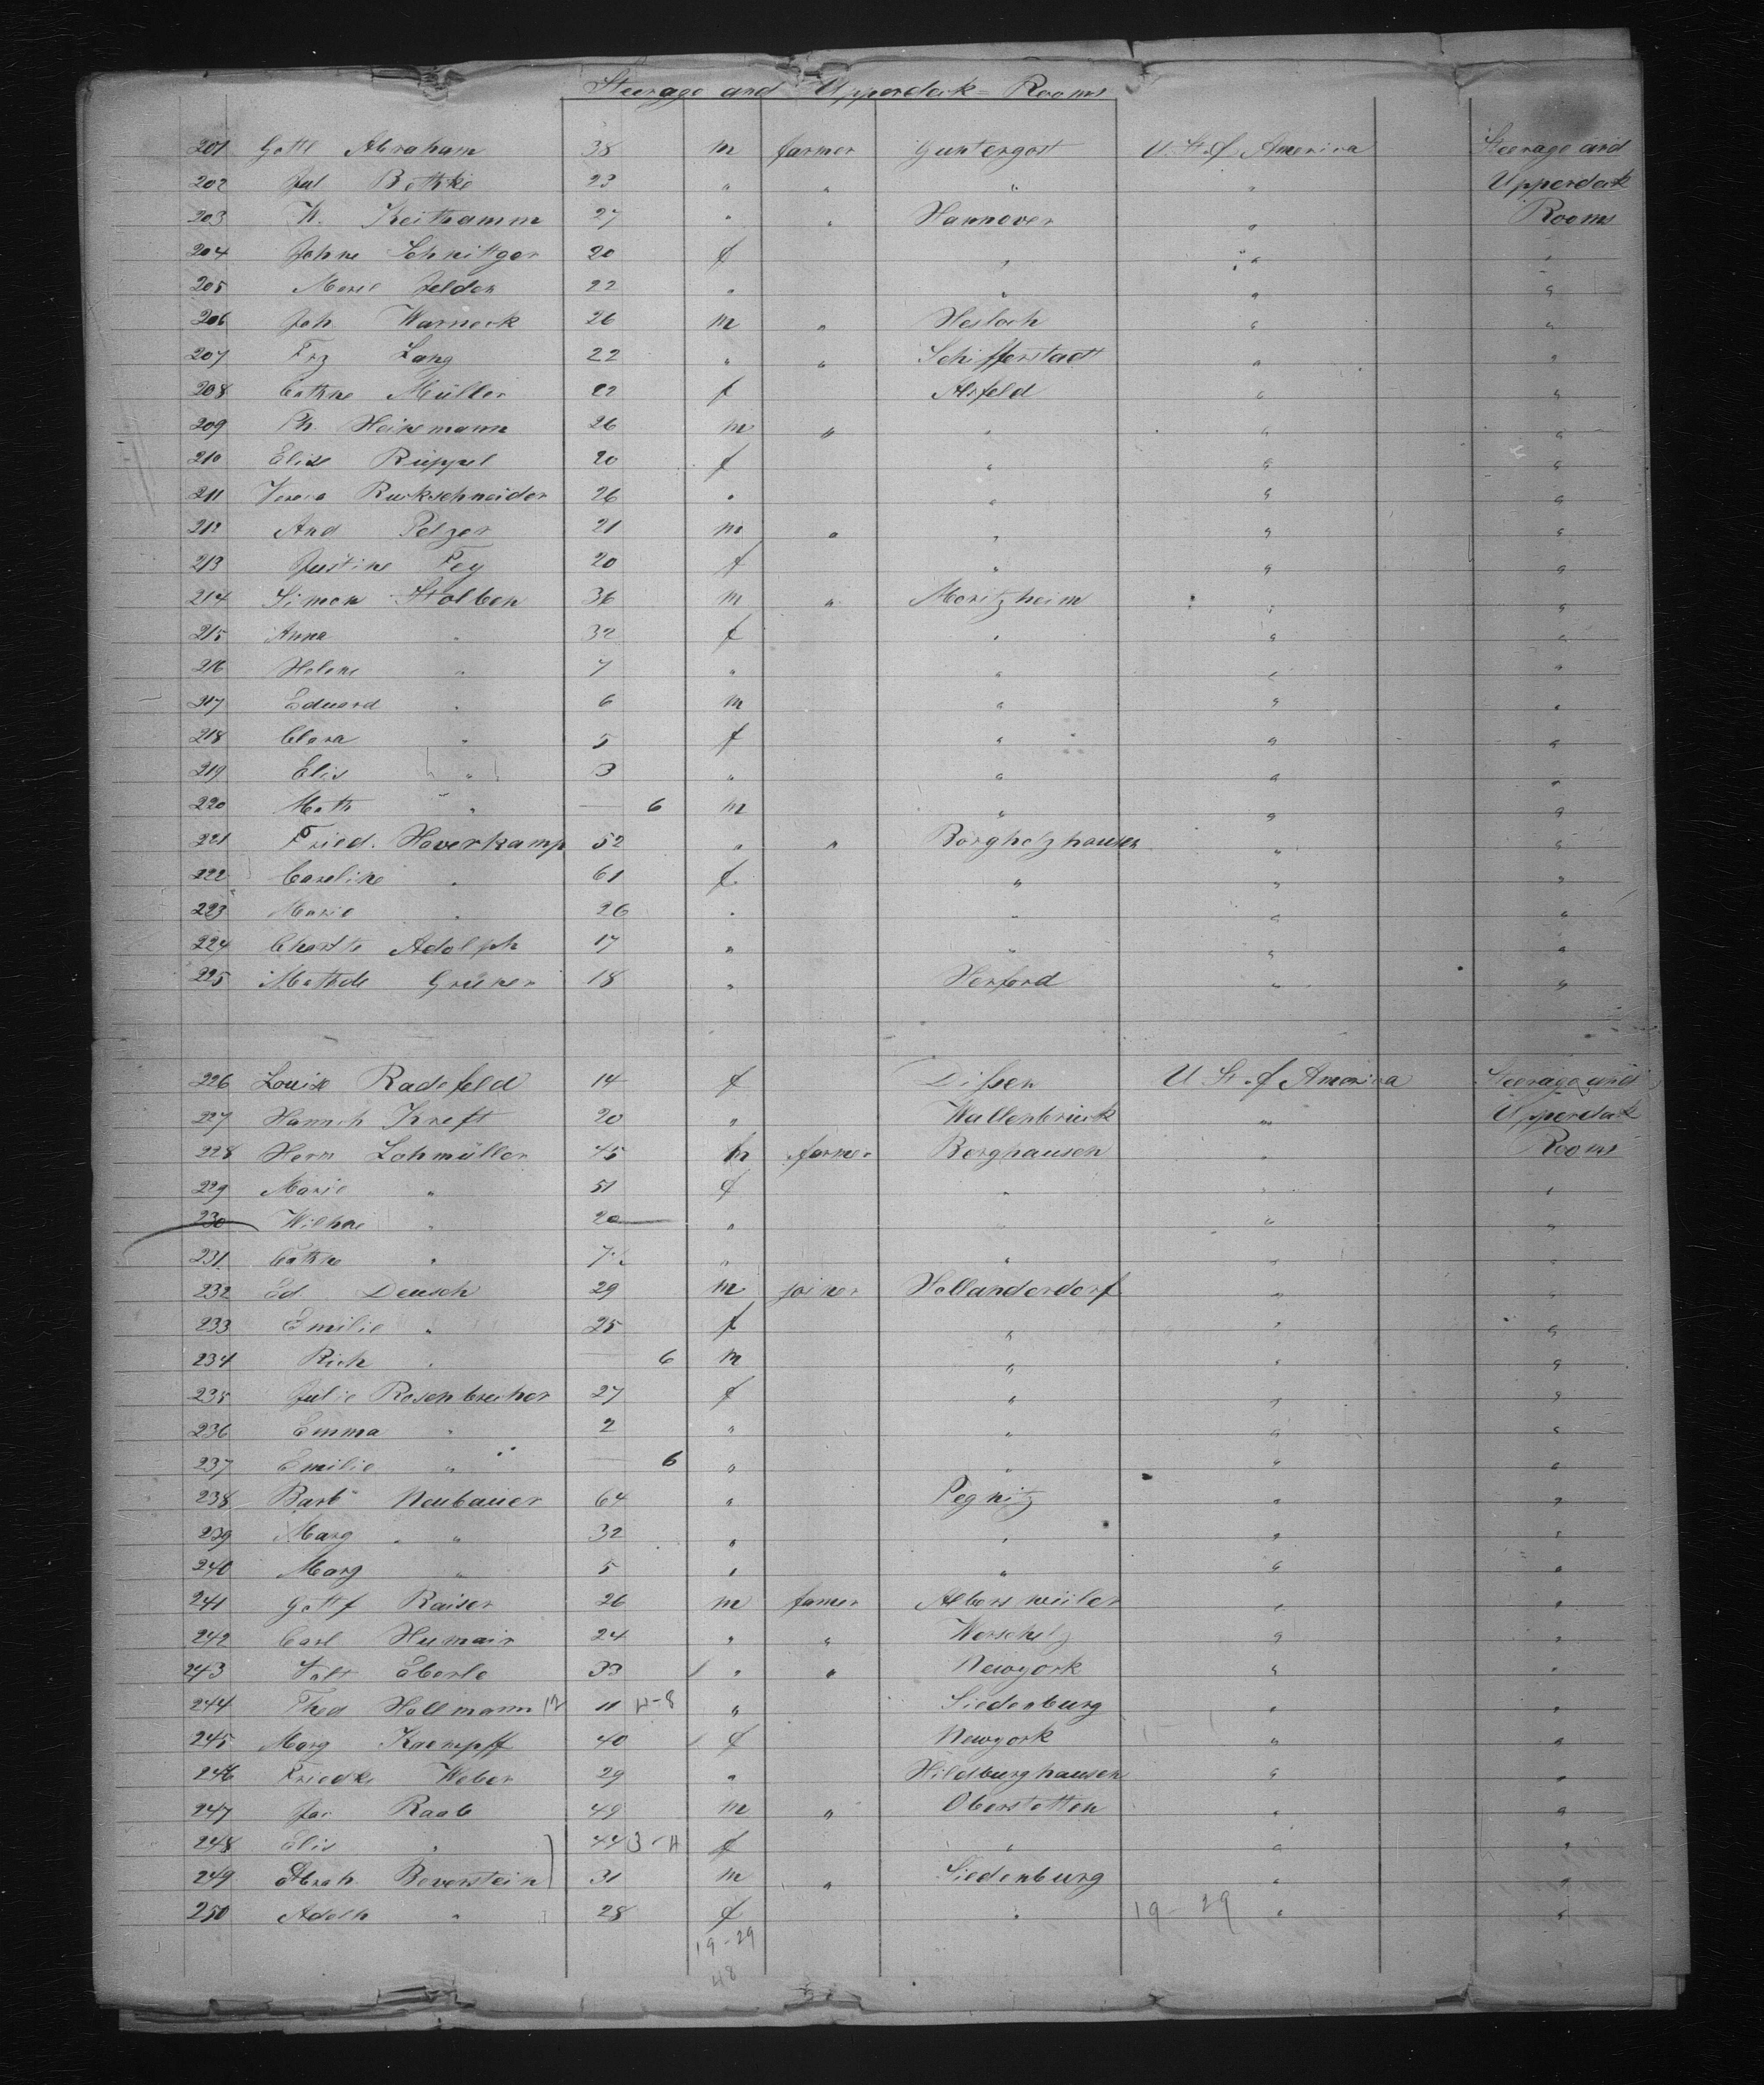 Steerage and Upperdeck-Rooms
201 Gottl Abraham 38 m farmer Guntergost U. St. of America Steerage and
202 Jul Bethke 23 " " " " Upperdeck
203 W. Keithamm 27 " " Hannover " Rooms
204 Johne Schnittger 20 f " " "
205 Marie Felden 22 " " " "
206 Joh Warneck 26 m " Hesloch " "
207 Frz Lang 22 " " Schifferstadt " "
208 Cathne Müller 22 f Alsfeld " "
209 Ph. Heinemann 26 m " " " "
210 Elise Rüppel 20 f " " "
211 Ruckschneider 26 " " " "
212 And Pelzer 21 m " " " "
213 Justine Fey 20 f " " "
214 Simon Stolben 36 m " Moritzheim " "
215 Anna " 32 f " " "
216 Helene " 7 " " " "
217 Eduard " 6 m " " "
218 Clara " 5 f " " "
219 Elis " 3 " " " "
220 Math " — 6 m " " "
221 Fried. Haverkamp 52 " " Borgholzhausen " "
222 Caroline " 61 f " " "
223 Marie " 26 " " " "
224 Charltte Adolph 17 " " " "
225 Mathde Grüner 18 " Herford " "
226 Louise Radefeld 14 f Dissen U St. of America Steerage and
227 Hannch Kreft 20 " Wallenbrück " Upperdeck
228 Herm Lohmüller 45 m farmer Borghausen " Rooms
229 Marie " 51 f " " "
230 Wilhne " 20 " " "
231 Cathne " 7 " " " "
232 Ed Deusch 29 m joiner Hollanderdorf " "
233 Emilie " 25 f " " "
234 Rich " — 6 m " " "
235 Julie Rosenbrücher 27 f " " "
236 Emma " 2 " " " "
237 Emilie " — 6 " " " "
238 Barb Neubauer 64 " Pegnitz " "
239 Marg " 32 " " " "
240 Marg " 5 " " " "
241 Gottf Kaiser 26 m famer Albersweiler " "
242 Carl Humair 24 " " " "
243 Valt Eberle 33 " " Newyork " "
244 Theo Hollmann 12 11 4-8 " Siedenburg " "
245 Marg Kaempff 40 f Newyork " "
246 Friedke Weber 29 " Hildburghausen " "
247 Jac Raab 49 m " Oberstetten " "
248 Elis " 44 3-4 f " " "
249 Abrah. Beverstein 31 m " Siedenburg " "
250 Adelh " 28 f " 19-29 " "
19-29
48